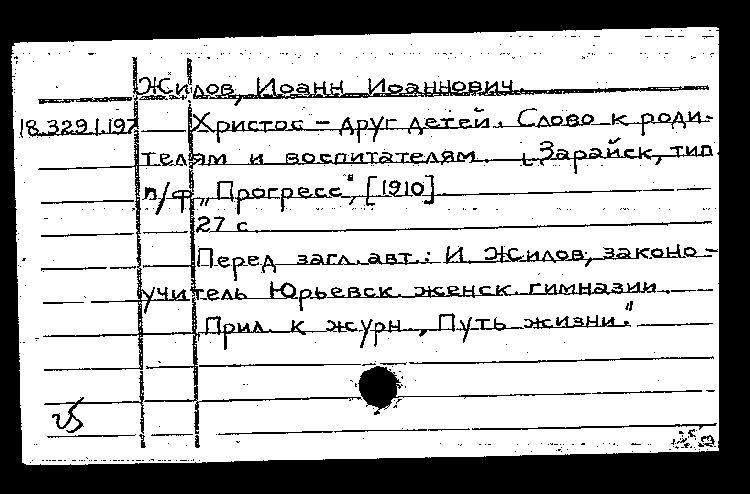 Жилов, Иоанн Иоаннович.
18.329.1.197 Христос – друг детей. Слово к роди-
телям и воспитателям. Зарайск, тип.
п/ф „Прогресс", [1910]
27 с.
Перед загл. авт.: И. Жилов, законо-
учитель Юрьевск. женск. гимназии.
Прил. к журн. „Путь жизни."